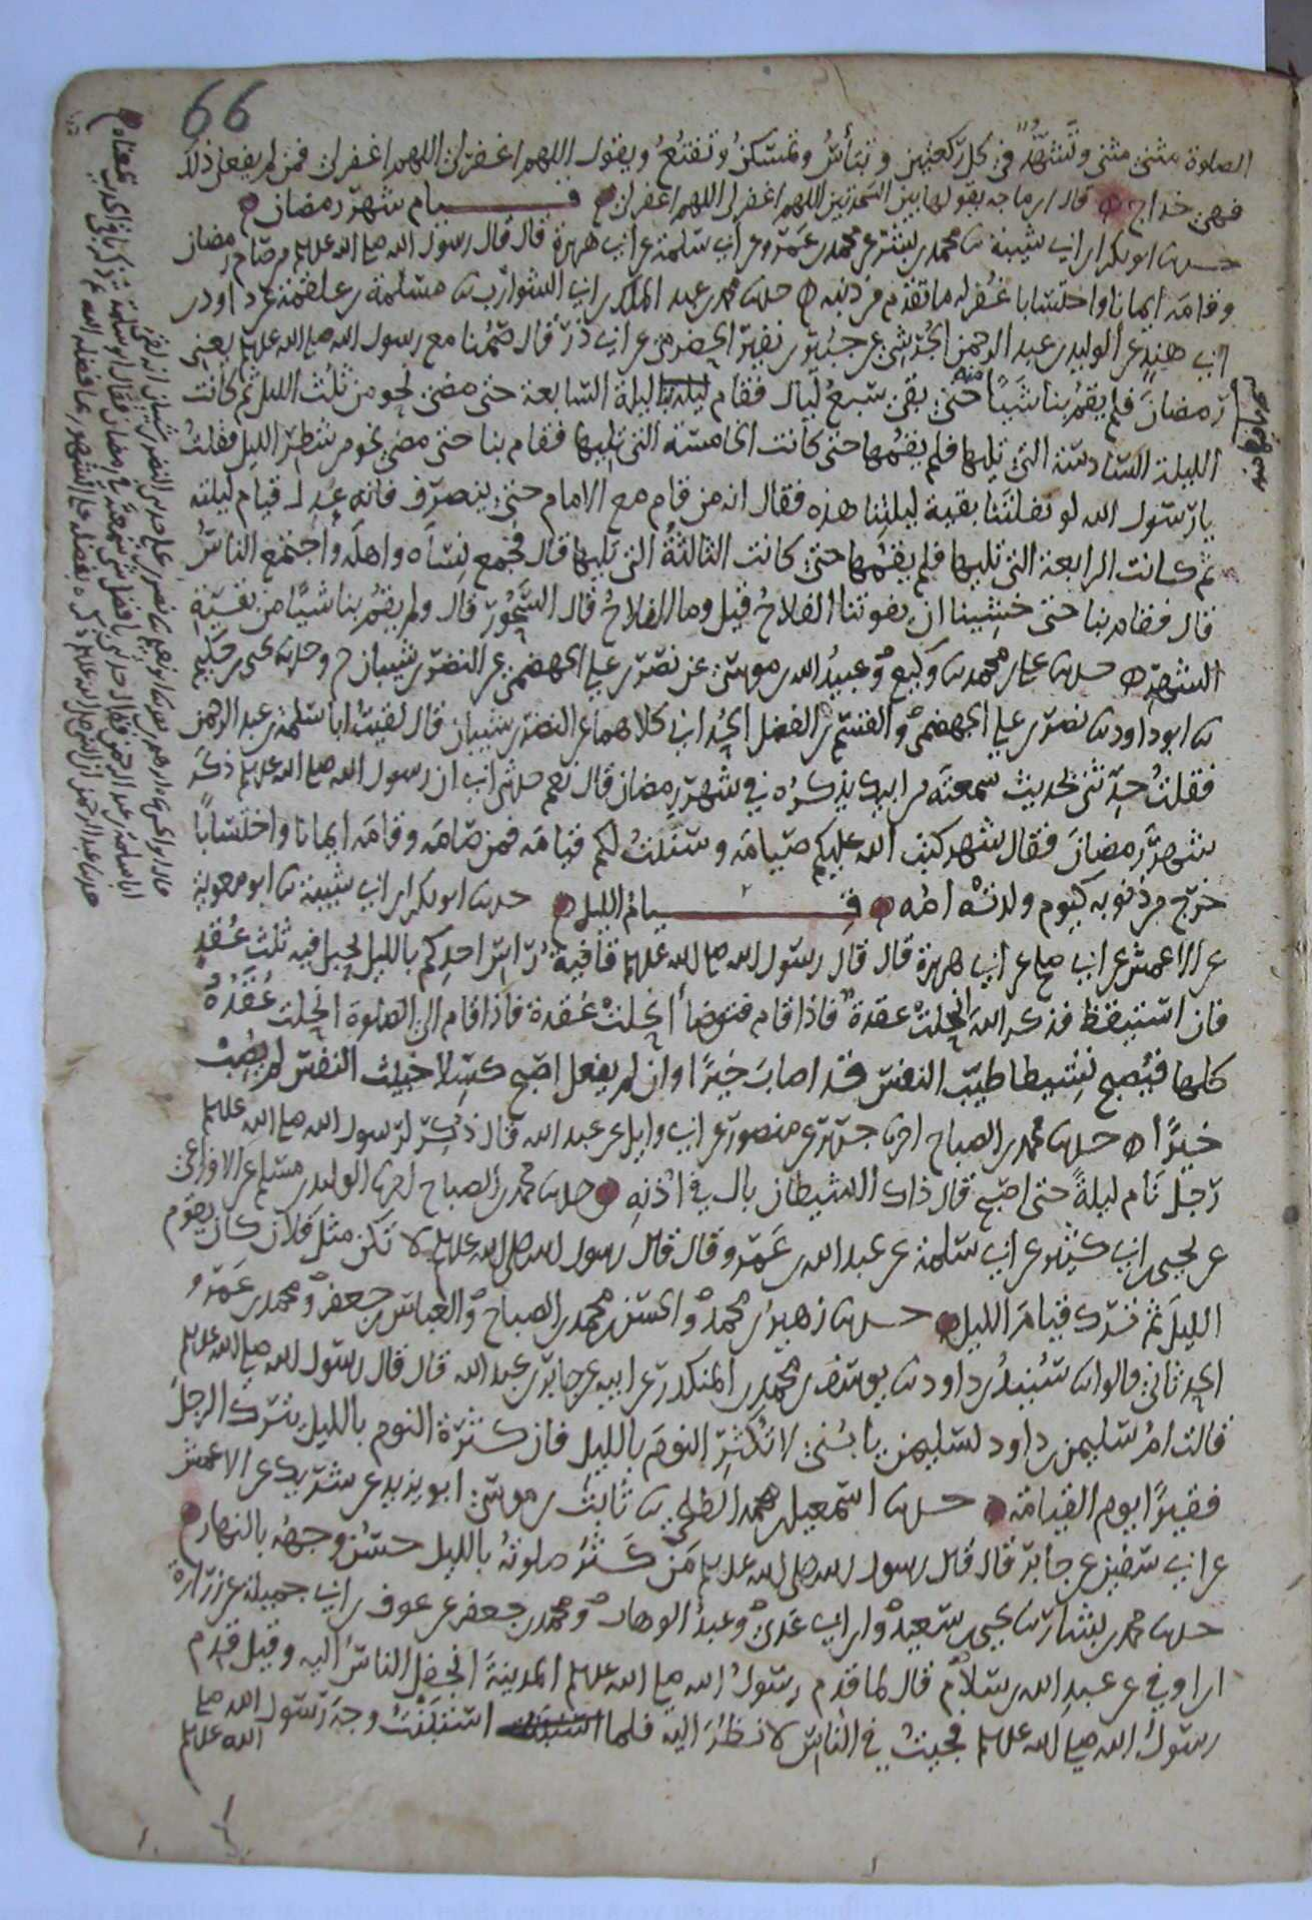 66
الصلوة مثنى مثنى وتَشَهَّدُ في كل ركعتين وتبأسُ وتمسكنُ وتقنعُ ويقول اللهم اغفر لي اللهم اغفر لي فمن لم يفعل ذلك
فهي خداج قال ابن ماجه يقولها بين السجدتين اللهم اغفر لي اللهم اغفر لي قيام شهر رمضان
حدثنا ابو بكر ابن ابي شيبة نا محمد بن بشر عن محمد بن عمرو عن ابي سلمة عن ابي هريرة قال قال رسول الله صلى الله عليه وسلم من صام رمضان
وقامه ايمانا واحتسابا غفر له ما تقدم من ذنبه حدثنا محمد بن عبد الملك بن ابي الشوارب نا مسلمة بن علقمة عن داود بن
ابي هند عن الوليد بن عبد الرحمن الجرشي عن جبير بن نفير الحضرمي عن ابي ذر قال صمنا مع رسول الله صلى الله عليه وسلم يعني
رمضان فلم يقم بنا شيئا منه حتى بقي سبع ليال فقام ليلة السابعة حتى مضى نحو من ثلث الليل ثم كانت
الليلة السادسة التي تليها فلم يقمها حتى كانت الخامسة التي تليها فقام بنا حتى مضى نحو من شطر الليل فقلت
يا رسول الله لو نفلتنا بقية ليلتنا هذه فقال انه من قام مع الامام حتى ينصرف فانه عدل قيام ليلته
ثم كانت الرابعة التي تليها فلم يقمها حتى كانت الثالثة التي تليها قال فجمع نساه واهله واجتمع الناس
قال فقام بنا حتى خشينا ان يفوتنا الفلاح قيل وما الفلاح قال السحور قال ولم يقم بنا شيئا من بقية
الشهر حدثنا علي بن محمد نا وكيع وعبيد الله بن موسى عن نصر بن علي الجهضمي عن النضر بن شيبان ح وحدثنا يحيى بن حكيم
نا ابو داود نا نصر بن علي الجهضمي والقسم بن الفضل الحداني كلاهما عن النضر بن شيبان قال لقيت ابا سلمة بن عبد الرحمن
فقلت حدثني بحديث سمعته من ابيك يذكره في شهر رمضان قال نعم حدثني ابي ان رسول الله صلى الله عليه وسلم ذكر
شهر رمضان فقال شهر كتب الله عليكم صيامه وسننت لكم قيامه فمن صامه وقامه ايمانا واحتسابا
خرج من ذنوبه كيوم ولدته امه قيام الليل حدثنا ابو بكر ابن ابي شيبة نا ابو معوية
عن الاعمش عن ابي صالح عن ابي هريرة قال قال رسول الله صلى الله عليه وسلم قافية راس احدكم بالليل بحبل فيه ثلث عقد
فان استيقظ فذكر الله انحلت عقدة فاذا قام فتوضأ انحلت عقدة فاذا قام الى الصلوة انحلت عقده
كلها فيصبح نشيطا طيب النفس قد اصاب خيرا وان لم يفعل اصبح كسلا خبيث النفس لم يصب
خيرا حدثنا محمد بن الصباح اخبرنا جرير عن منصور عن ابي وايل عن عبد الله قال ذكر لرسول الله صلى الله عليه وسلم
رجل نام ليلة حتى اصبح قال ذاك الشيطان بال في اذنه حدثنا محمد بن الصباح اخبرنا الوليد بن مسلم عن الاوزاعي
عن يحيى بن ابي كثير عن ابي سلمة عن عبد الله بن عمرو قال قال رسول الله صلى الله عليه وسلم لا تكن مثل فلان كان يقوم
الليل ثم ترك قيام الليل حدثنا زهير بن محمد والحسن بن محمد بن الصباح والعباس بن جعفر ومحمد بن عمرو
الحدثاني قالوا نا سنيد بن داود نا يوسف بن محمد بن المنكدر عن ابيه عن جابر بن عبد الله قال قال رسول الله صلى الله عليه وسلم
قالت ام سليمن بن داود لسليمن يا بني لا تكثر النوم بالليل فان كثرة النوم بالليل يترك الرجل
فقيرا يوم القيامة حدثنا اسمعيل بن محمد الطلحي نا ثابت بن موسى ابو يزيد عن شريك عن الاعمش
عن ابي سفين عن جابر قال قال رسول الله صلى الله عليه وسلم من كثر صلوته بالليل حسن وجهه بالنهار
حدثنا محمد بن بشار نا يحيى بن سعيد وابن ابي عدي وعبد الوهاب ومحمد بن جعفر عن عوف بن ابي جميلة عن زرارة
ابن اوفي عن عبد الله بن سلام قال لما قدم رسول الله صلى الله عليه وسلم المدينة انجفل الناس اليه وقيل قدم
رسول الله صلى الله عليه وسلم فجيت في الناس لانظر اليه فلما استبنت وجه رسول الله صلى
الله عليه وسلم